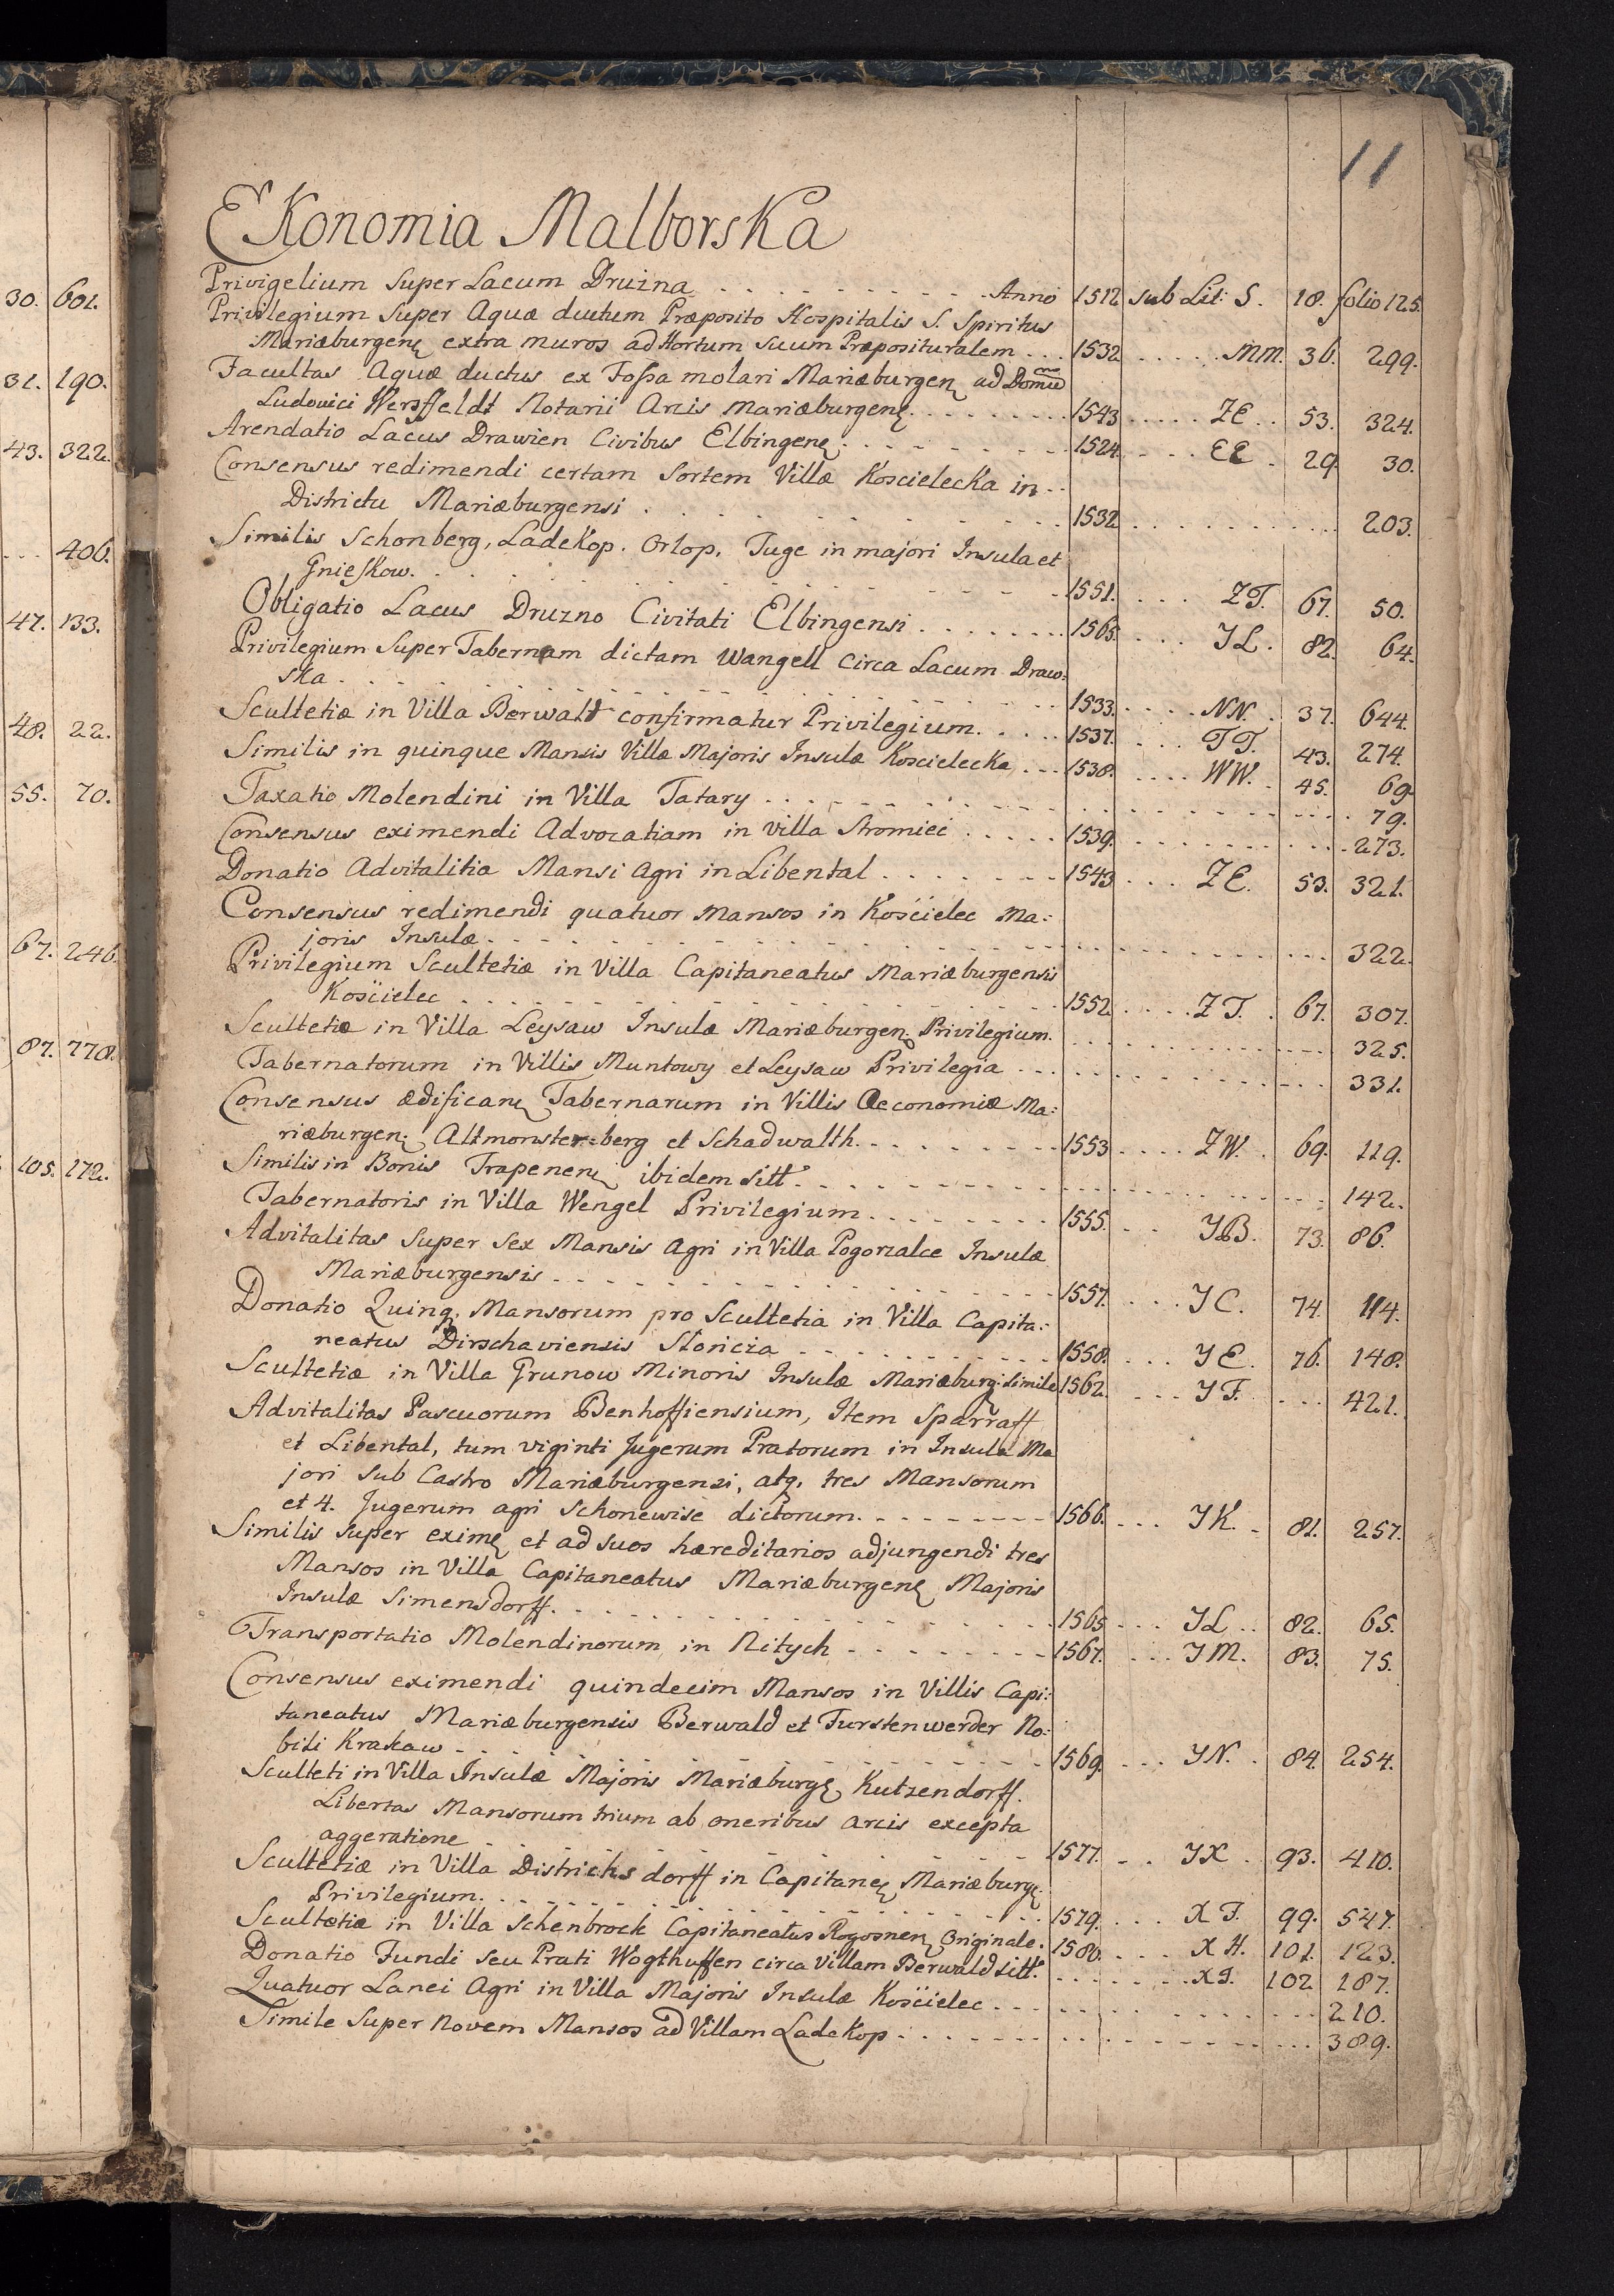 11
30. 601.
31. 190.
43. 322.
... 406.
47. 133.
48. 22.
55. 70.
67. 246.
87. 778.
105. 172.
EKonomia MalborsKa
Privigelium Super Lacum Druzna . . . . . . . . . . . Anno 1512 sub Lit: S. 18. folio 125.
Privilegium Super Aquæ ductum Præposito Hospitalis S. Spiritus
Mariæburgen extra muros ad Hortum suum Præposituralem . . . 1532 . . . . . MM. 36. 299.
Facultas Aquæ ductus ex Fossa molari Mariæburgen ad Domum
Ludovici Wersffeldt Notarii Arcis Mariæburgen . . . . . . . . . 1543 . . . . . ZE . . 53. 324.
Arendatio Lacus Drawien Civibus Elbingen . . . . . . . . 1524 . . . . EE . 29 30.
Consensus redimendi certam Sortem Villæ KoscielecKa in . .
Districtu Mariæburgensi . . . . . . . . . . . 1532 . . . . . . . . . . . 203.
Similis Schonberg, LadeKop. Orlop. Tuge in majori Insula et
GniesKow. . . . . . . . . . . . . . . 1551. . . . ZT. 67. 50.
Obligatio Lacus Druzno Civitati Elbingensi . . . . . . . . 1565 . . . . YL. 82. 64.
Privilegium Super Tabernam dictam Wangell circa Lacum Draw:
ska . . . . . . . . . . . . . . . . 1533. . . . . NN. . 37. 644.
Scultetiæ in Villa Berwald confirmatur Privilegium. . . . . 1537. . . . TT. 43. 274.
Similis in quinque Mansis Villæ Majoris Insulæ KoscielecKa . . . 1538. . . . . WW. . 45. 69
Taxatio Molendini in Villa Tatary . . . . . . . . . . . . . . . . . . . 79.
Consensus eximendi Advocatiam in Villa Stromiec . . . . . 1539. . . . . . . . . . . 273.
Donatio Advitalitia Mansi Agri in Libental . . . . . . . 1543 . . . ZE. 53. 321.
Consensus redimendi quatuor Mansos in Kościelec Ma:
joris Insulæ . . . . . . . . . . . . . . . . . . . . . . . . 322.
Privilegium Scultetiæ in Villa Capitaneatus Mariæburgensis
Kościelec . . . . . . . . . . . . . . . 1552 . . . . ZT. . 67. 307.
Scultetiæ in Villa Leysaw Insulæ Mariæburgen: Privilegium. . . . . . . . . . . . . . 325.
Tabernatorum in Villis Muntowy et Leysaw Privilegia . . . . . . . . . . . . . . . 331.
Consensus ædifican Tabernarum in Villis Oeconomiæ Ma:
riæburgen: Altmonster=berg et Schadwalth. . . . . . . . . 1553 . . . . ZW. . 69. 119.
Similis in Bonis Trapenen ibidem sitt . . . . . . . . . . . . . . . . . . . . 142.
Tabernatoris in Villa Wengel Privilegium . . . . . . . . 1555. . . YB. 73. 86.
Advitalitas Super Sex Mansis Agri in Villa Pogorzalce Insulæ
Mariæburgensis . . . . . . . . . . . . . 1557. . . . YC. 74. 114.
Donatio Quinq. Mansorum pro Scultetia in Villa Capita:
neatus Dirschaviensis Stoncza . . . . . . . . . . . 1558. . . . YE. 76. 148.
Scultetiæ in Villa Grunow Minoris Insulæ Mariæburg: simile 1562. . . . YF. . . . 421.
Advitalitas Pascuorum Benhoffiensium, Item Sparraff
et Libental, tum viginti Jugerum Pratorum in Insula Ma
jori sub Castro Mariæburgensi, atq. tres Mansorum
et 4. Jugerum agri Schonewise dictorum. . . . . . . . . 1566. . . . YK. . 81. 257.
Similis super exime et ad suos hæreditarios adjungendi tres
Mansos in Villa Capitaneatus Mariæburgen Majoris
Insulæ Simensdorff. . . . . . . . . . . . . 1565 . . . YL . . 82. 65.
Transportatio Molendinorum in Nitych . . . . . . . . 1567. . . . YM. 83. 75.
Consensus eximendi quindecim Mansos in Villis Capi:
taneatus Mariæburgensis Berwald et Furstenwerder No:
bili Krakaw . . . . . . . . . . . . . . 1569. . . . YN. . 84. 254.
Sculteti in Villa Insulæ Majoris Mariæburg Kutzendorff.
Libertas Mansorum trium ab oneribus arcis excepta
aggeratione . . . . . . . . . . . . . 1577. . . YX . 93. 410.
Scultetiæ in Villa Districhsdorff in Capitane Mariæburg.
Privilegium. . . . . . . . . . . . . . . 1579. . . . XF. 99. 547.
Scultetiæ in Villa Schenbrock Capitaneatus Rogosnen Originale. 1580. . . . XH. 101. 123.
Donatio Fundi seu Prati Wogthuffen circa Villam Berwald sitt. . . . . . . . XI. 102 187.
Quatuor Lanei Agri in Villa Majoris Insulæ Kościelec . . . . . . . . . . . . . 210.
Simile Super Novem Mansos ad Villam LadeKop . . . . . . . . . . . . . . . . 389.